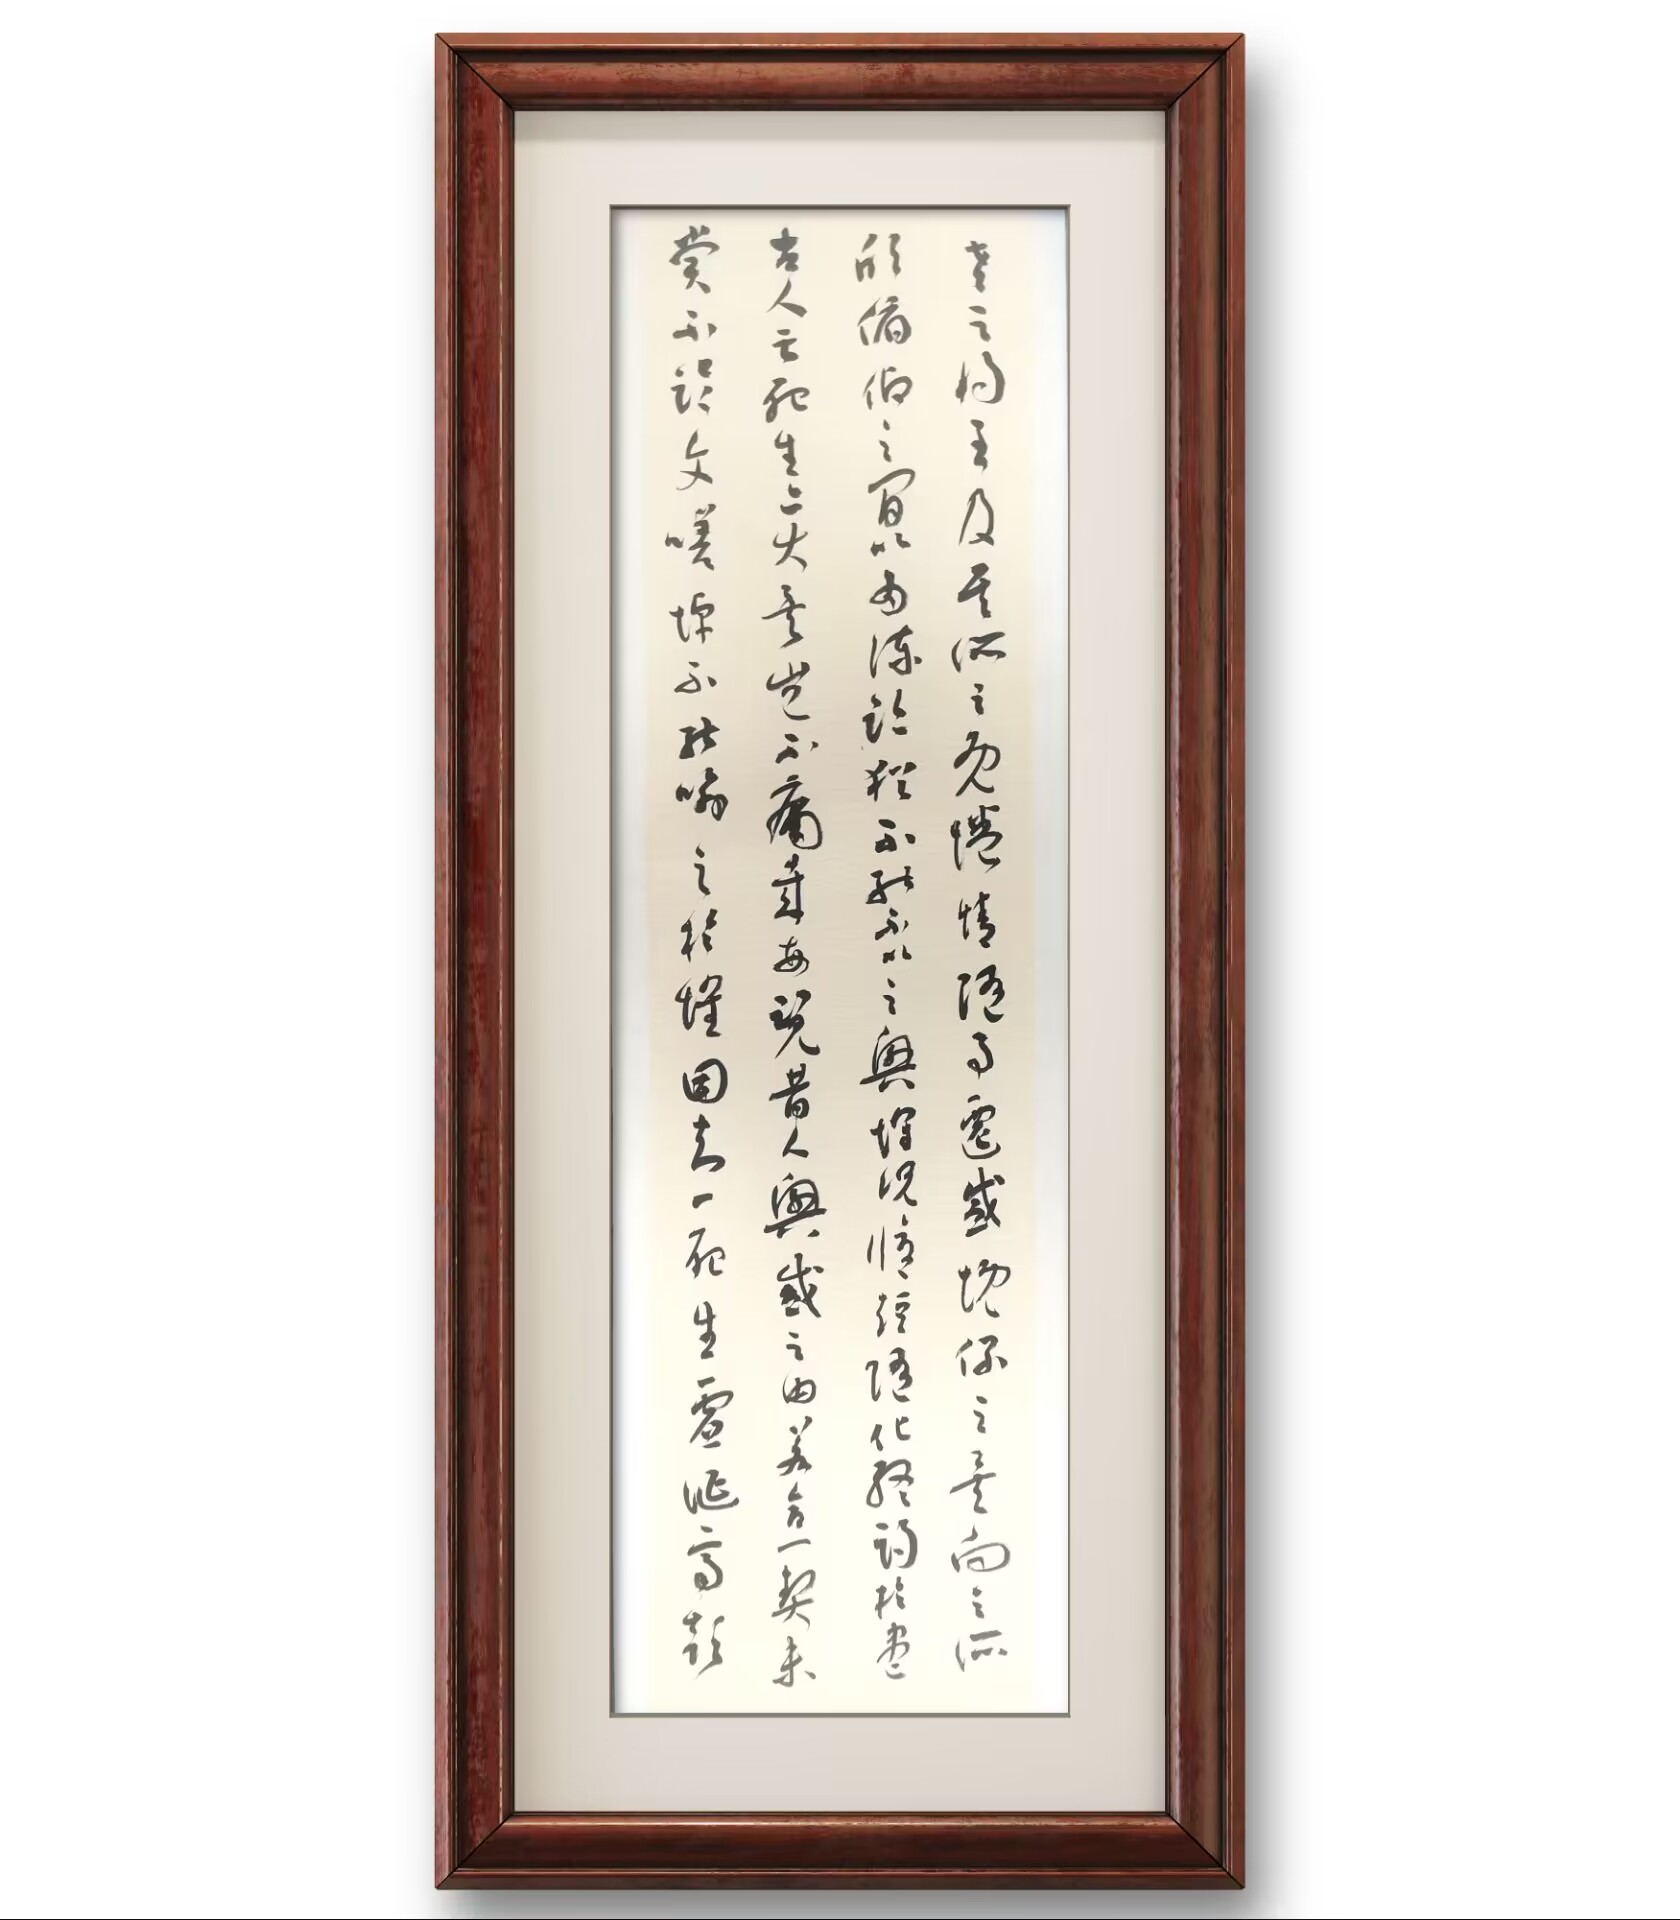 老之將至及其所之既惓情隨事遷感慨係之矣向之所
欣俯仰之間以為陳跡猶不能不以之興懷況脩短隨化終期於盡
古人云死生亦大矣豈不痛哉每覽昔人興感之由若合一契未
嘗不臨文嗟悼不能喻之於懷固知一死生虛誕齊彭